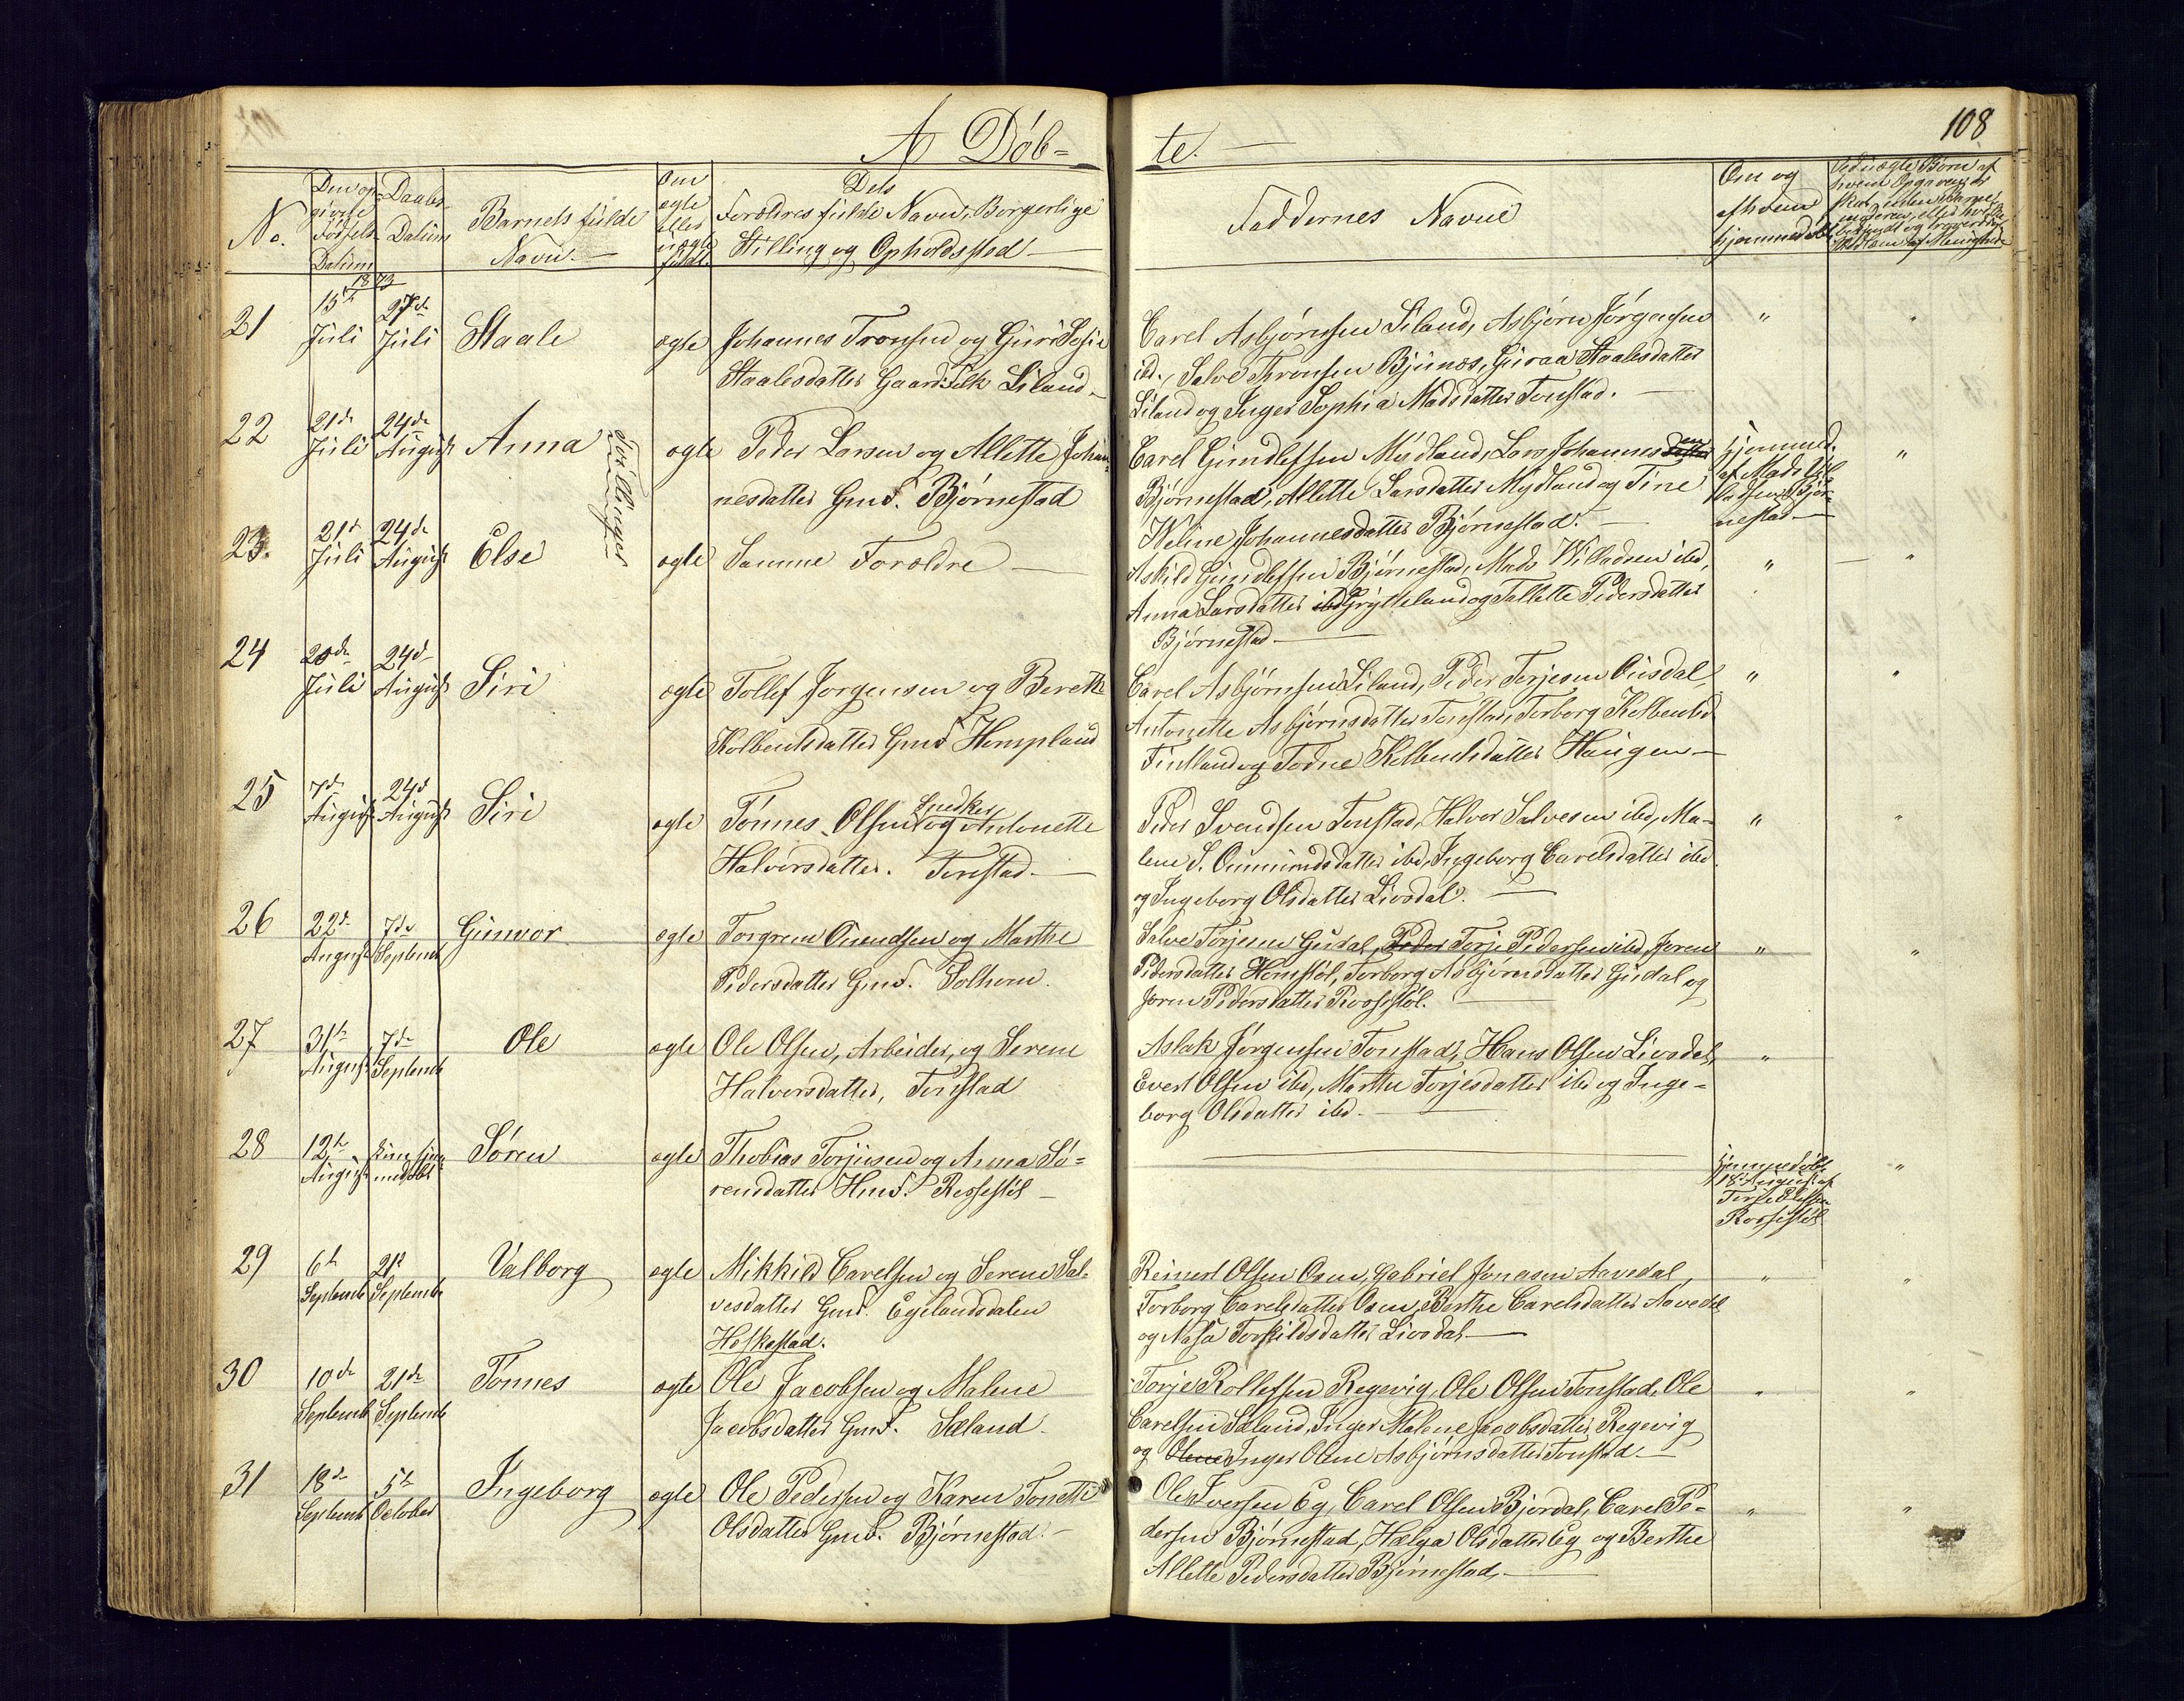 108
A Døb=
te. —
No.
Den op-
givne
Fødsels
Datum
Daabs-
Datum
Barnets fulde
Navn. —
Om
ægte
eller
uægte
født.
Dets
Forældres fulde Navn, Borgerlige
Stilling og Opholdssted —
Faddernes Navne
Om og
af hvem
hjemmedøbt
Ved uægte Børn af
1873
21
15de
Juli
27de
Juli
Staale
ægte
Johannes Tronsen og Guri Sofie
Staalesdatter Gaard. Folk Liland
Carel Asbjørnsen Liland, Asbjørn Jørgensen
ibd., Salve Thronsen Bjunes, Guraa Staalesdatter
Liland og Inger Sophia Madsdatter Tonstad. —
"
"
22
21de
Juli
24de
August
Anna
Tvillinger
ægte
Peder Larsen og Allette Johan-
nesdatter Gmd. Bjørnestad
Carel Gundlefsen Mydland, Lars Johannesen
Bjørnestad, Allette Larsdatter Mydland og Tine
Heline Johannesdatter Bjørnestad. —
hjemmed.
af Mads Vil
ladsen Bjør-
nestad —
"
23.
21de
Juli
24de
August
Else
ægte
Samme Forældre —
Askild Gundlefsen Bjørnestad, Mads Willadsen ibd,
Anna Larsdatter ibd Grytteland og Tallette Pedersdatter
Bjørnestad —
"
"
24
20de
Juli
24de
August
Siri
ægte
Tollef Jørgensen og Berette
Kolbentsdatter Gmd Hompland
Carel Asbjørnsen Liland, Peder Terjesen Ousdal,
Antonette Asbjørnsdatter Tonstad, Torborg Kolbentsd
Fintland og Todne Kolbentsdatter Haugen —
"
"
25
7de
August
24de
August
Siri
ægte
Tønnes Olsen Snedker og Antonette
Halvorsdatter. Tonstad —
Peder Svendsen Tonstad, Halvor Salvesen ibd, Ma-
lene S. Ommundsdatter ibd, Ingeborg Carelsdatter ibd
og Ingeborg Olsdatter Liosdal. —
"
"
26
22de
August
7de
Septemb
Gunvor
ægte
Torgrim Ouendsen og Marthe
Pedersdatter Gmd. Solhom.
Salve Torjesen Gudal, Peder Torje Pedersen ibd, Joren
Pedersdatter Homstøl, Torborg Asbjørnsdatter Gudal og
Joren Pedersdatter Rossestøl. —
"
"
27
31te
August
7de
Septemb
Ole
ægte
Ole Olsen, Arbeider, og Serene
Halvorsdatter, Tonstad
Aslak Jørgensen Tonstad, Hans Olsen Liosdal,
Evert Olsen ibd, Marthe Torjesdatter ibd og Inge-
borg Olsdatter ibd. —
"
28
12te
August
Kun hjem
medøbt
Søren
ægte
Thobias Torjusen og Anna Sø-
rensdatter Hmd. Rossestøl —
hjemmedøbt
18 August af
Torje
Rossestøl
"
29
6te
Septemb
21de
Septemb
Valborg
ægte
Mikkild Carelsen og Serene Sal-
vesdatter Gmd. Egelandsdalen
Heskestad.
Reinert Olsen Osen, Gabriel Jonasen Aavedal,
Torborg Carelsdatter Osen, Berthe Carelsdatter Aavedal,
og Aasa Torkildsdatter Liosdal —
"
"
30
10de
Septemb
21de
Septemb
Tønnes
ægte
Ole Jacobsen og Malene
Jacobsdatter Gmd. Sæland.
Torje Rollefsen Regevig, Ole Olsen Tonstad, Ole
Carelsen Sæland, Inger Malene Jacobsdatter Regevig
og Olene Inger Olene Asbjørnsdatter Tonstad. —
"
"
31
18de
Septemb
5te
October
Ingeborg
ægte
Ole Pedersen og Karen Tonette
Olsdatter Gmd. Bjørnestad. —
Ole Iversen Eg, Carel Olsen Bjordal, Carel Pe-
dersen Bjørnestad, Hælga Olsdatter Eg og Berthe
Allette Pedersdatter Bjørnestad. —
"
"